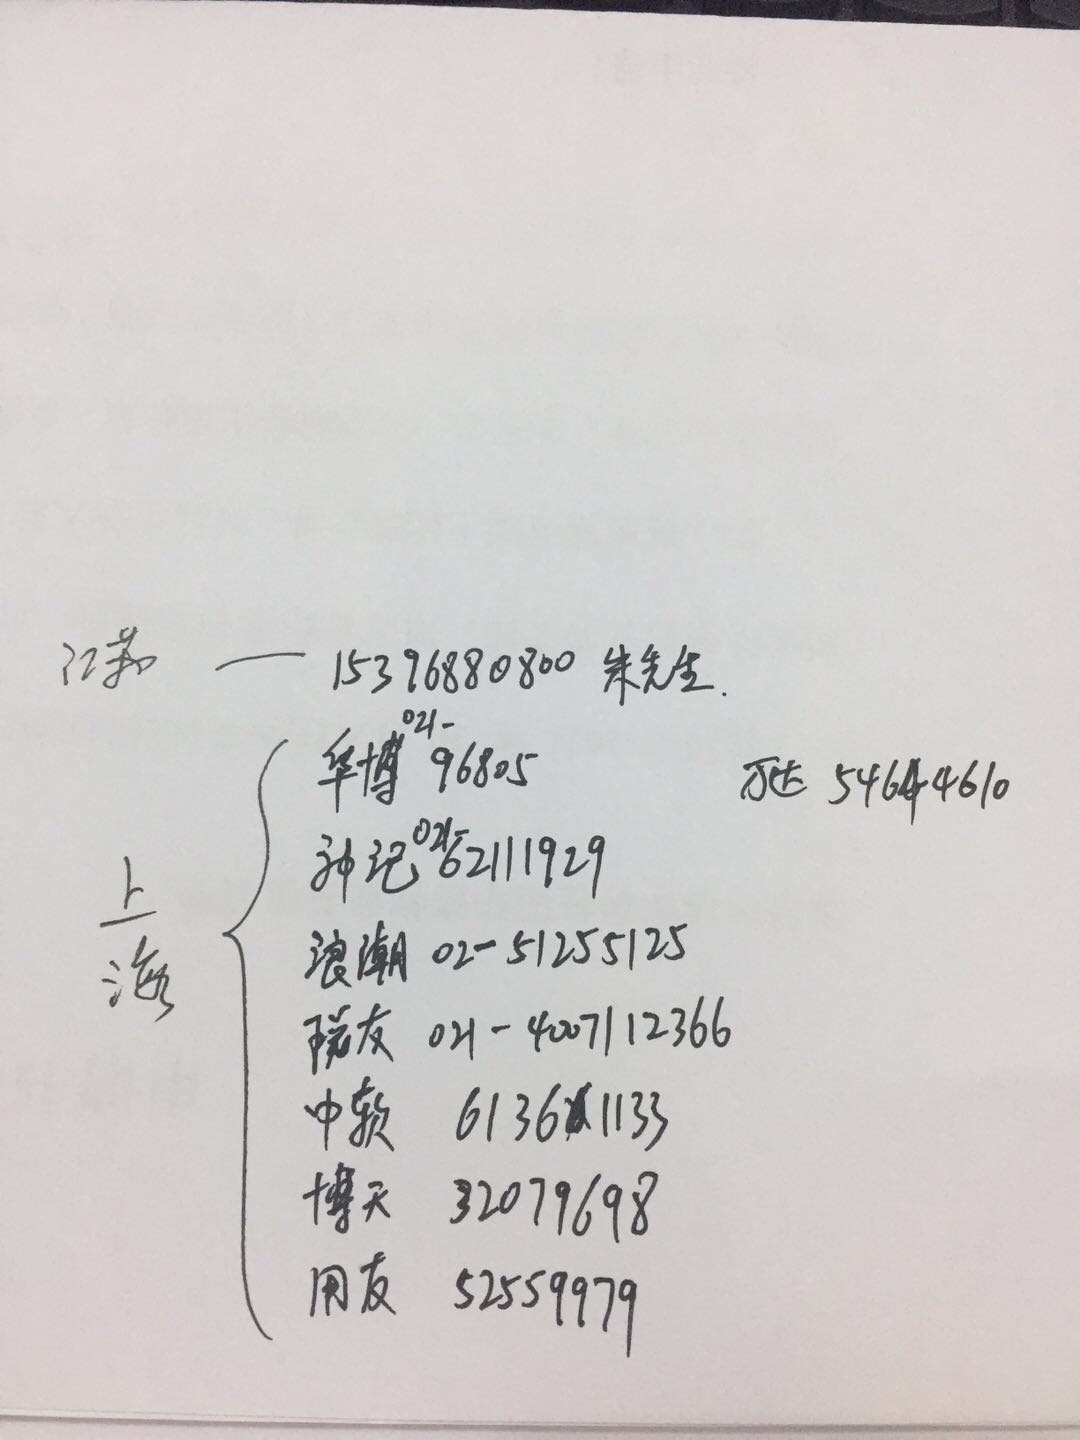 江苏 — 15396880800 朱先生.
上海
华博 021-96805
万达 54644610
神记 021-62111929
浪潮 02-51255125
瑞友 021-4007112366
中软 61361133
博天 32079698
用友 52559979